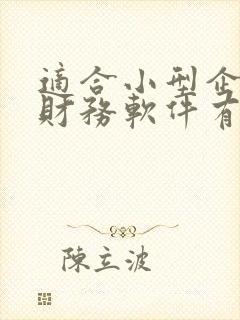 適合小型企
財務軟件有
陳立波